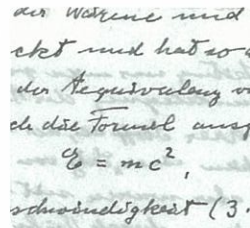 der Wärme und
ckt und hat so
der Aequivalenz
ch die Formel ausg
ℰ = mc²,
schwindigkeit (3.